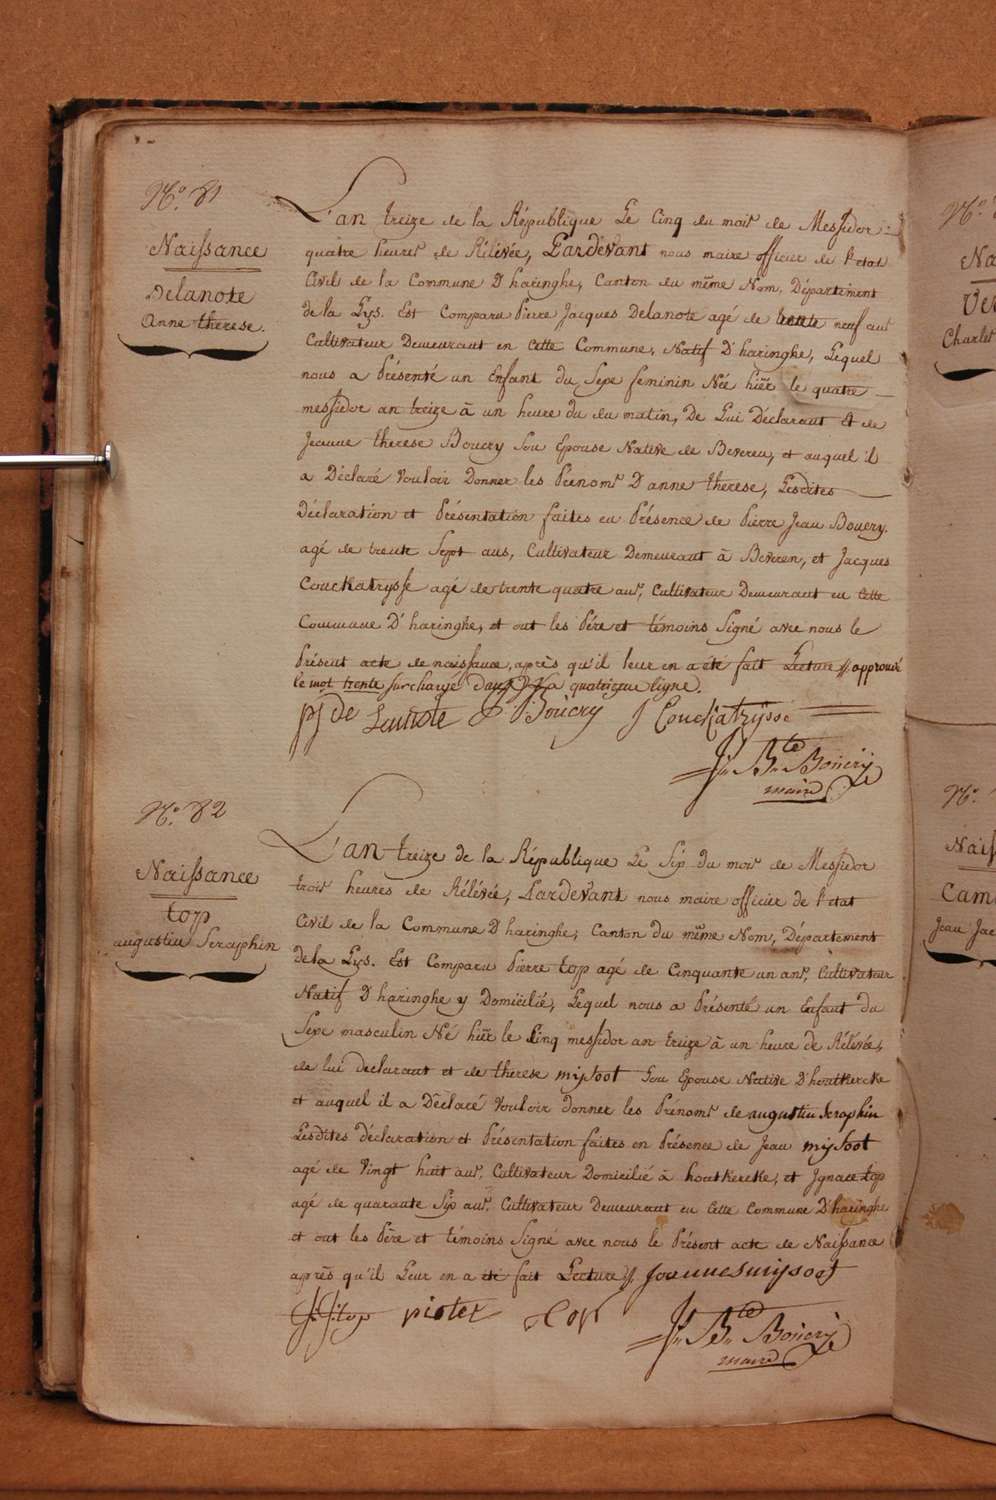 N.° 81
Naissance
Delanote
Anne therese.
L'an treize de la République Le Cinq du mois de Messidor
quatre heures de Rélévée, Pardevant nous maire officier de l'etat
Civil de la Commune D'haringhe, Canton du même Nom, Département
de la Lys. Est Comparu Pierre Jacques Delanote agé de trente neuf ans
Cultivateur Demeurant en Cette Commune, Natif D'haringhe, Lequel
nous a Présenté un Enfant du Sexe feminin Née hier le quatre
messidor an treize à un heure du du matin, De Lui Déclarant Et de
Jeanne therese Bouery Son Epouse Native de Beveren, et auquel il
a Déclaré Vouloir Donner les Prénoms D'anne therese, Lesdites
Déclaration et Présentation faites en Présence de Pierre Jean Bouery.
agé de trente Sept ans, Cultivateur Demeurant à Beveren, et Jacques
Couckatrysse agé de trente quatre ans, Cultivateur Demeurant en Cette
Commune D'haringhe, et ont les Père et témoins Signé avec nous le
Présent acte de naissance, après qu'il leur en a été fait Lecture // approuvé
le mot trente surchargé Dans la quatrieme ligne.
pj de Lanote P J Bouery J Couckatrijsse
Jn Bte Bouery
maire
N.° 82
Naissance
top
augustin Seraphin
L'an treize de la République Le Six du mois de Messidor
trois heures de Rélévée, Pardevant nous maire officier de l'etat
Civil de la Commune D'haringhe, Canton du même Nom, Département
de la Lys. Est Comparu Pierre top agé de Cinquante un ans, Cultivateur
Natif D'haringhe y Domicilié, Lequel nous a Présenté un Enfant du
Sexe masculin Né hier le Cinq messidor an treize à un heure de Rélévée,
de lui declarant et de therese mijsoot Son Epouse Native D'houtkercke
et auquel il a Déclaré Vouloir donner les Prénoms de augustin Seraphin
Lesdites déclaration et Présentation faites en Présence de Jean mijsoot
agé de Vingt huit ans, Cultivateur Domicilié à houtkercke, et Ignace top
agé de quarante Six ans, Cultivateur Demeurant en Cette Commune D'haringhe
et ont les Père et témoins Signé avec nous le Présent acte de Naissance
après qu'il Leur en a été fait Lecture // Joannes mijsoot
J: J: top pieter top
Jn Bte Bouery
maire
N.°
Na
Ver
Charlet
N.°
Naiss
Cam
Jean Jac